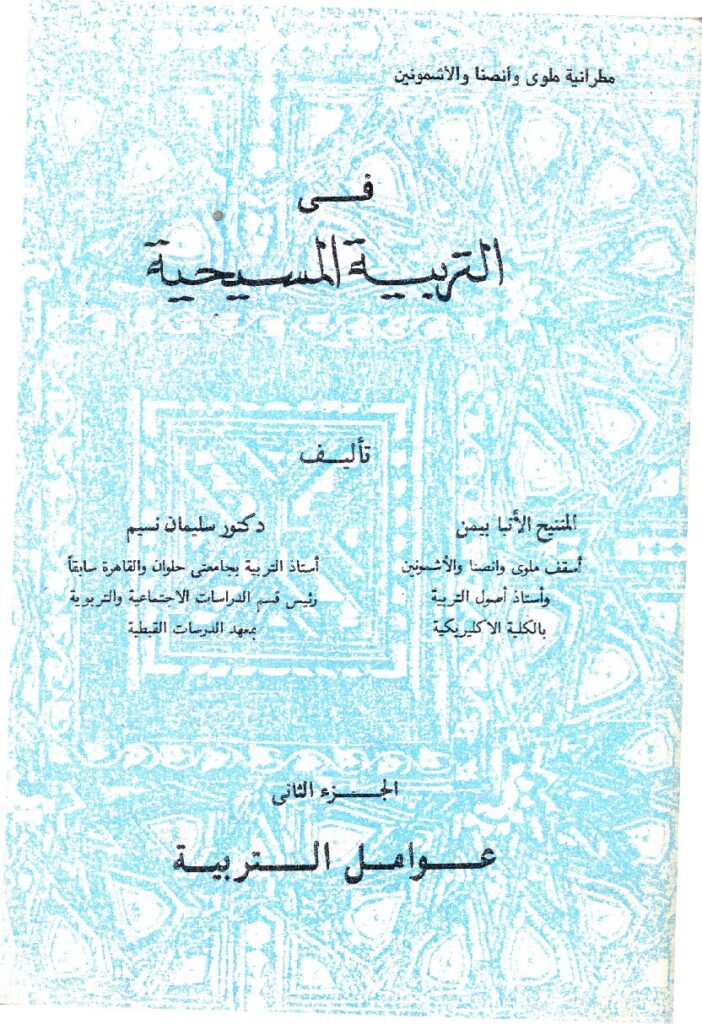 مطرانية ملوى وأنصنا والأشمونين
فى
التربية المسيحية
تأليف
المتنيح الأنبا بيمن
أسقف ملوى وانصنا والأشمونين
وأستاذ أصول التربية
بالكلية الاكليريكية
دكتور سليمان نسيم
أستاذ التربية بجامعتى حلوان والقاهرة سابقاً
رئيس قسم الدراسات الاجتماعية والتربوية
بمعهد الدرسات القبطية
الجزء الثانى
عوامل التربية